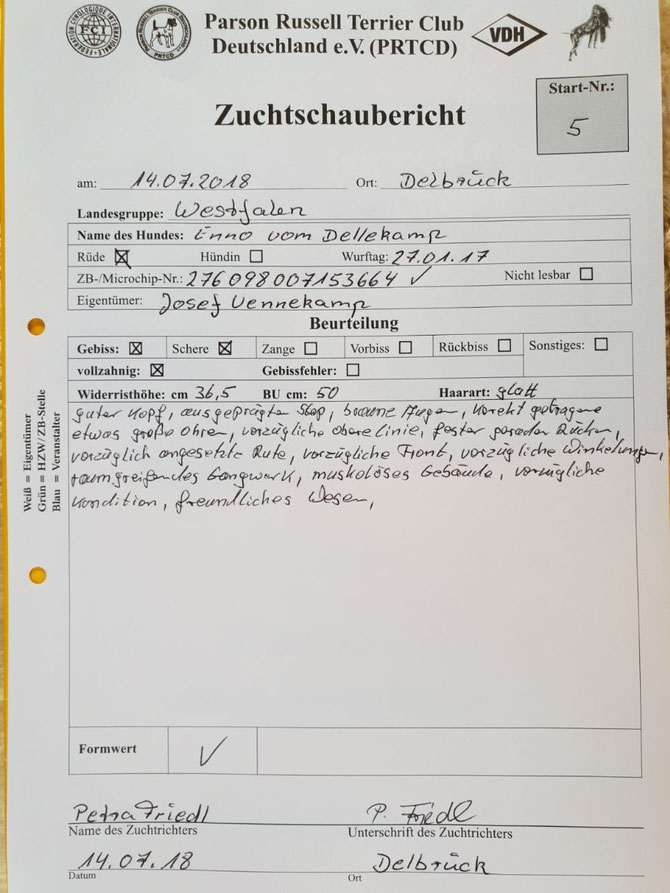 Parson Russell Terrier Club
Deutschland e.V. (PRTCD)
FEDERATION CYNOLOGIQUE INTERNATIONALE
FCI
PRTCD
VDH
Zuchtschaubericht
Start-Nr.:
5
am: 14.07.2018 Ort: Delbrück
Landesgruppe: Westfalen
Name des Hundes: Enno vom Dellekamp
Rüde ☒ Hündin ☐ Wurftag: 27.01.17
ZB-/Microchip-Nr.: 276098007153664 ✓ Nicht lesbar ☐
Eigentümer: Josef Vennekamp
Beurteilung
Gebiss: ☒ Schere ☒ Zange ☐ Vorbiss ☐ Rückbiss ☐ Sonstiges: ☐
vollzahnig: ☒ Gebissfehler: ☐
Widerristhöhe: cm 36,5 BU cm: 50 Haarart: glatt
guter Kopf, ausgeprägter Stop, braune Augen, korekt getragene
etwas große Ohren, vorzügliche obere Linie, fester gerader Rücken,
vorzüglich angesetzte Rute, vorzügliche Front, vorzügliche Winkelungen,
raumgreifendes Gangwerk, muskolöses Gebäude, vorzügliche
Kondition, freundliches Wesen,
Weiß = Eigentümer
Grün = HZW/ZB-Stelle
Blau = Veranstalter
Formwert ✓
Petra Friedl P. Friedl
Name des Zuchtrichters Unterschrift des Zuchtrichters
14.07.18 Delbrück
Datum Ort